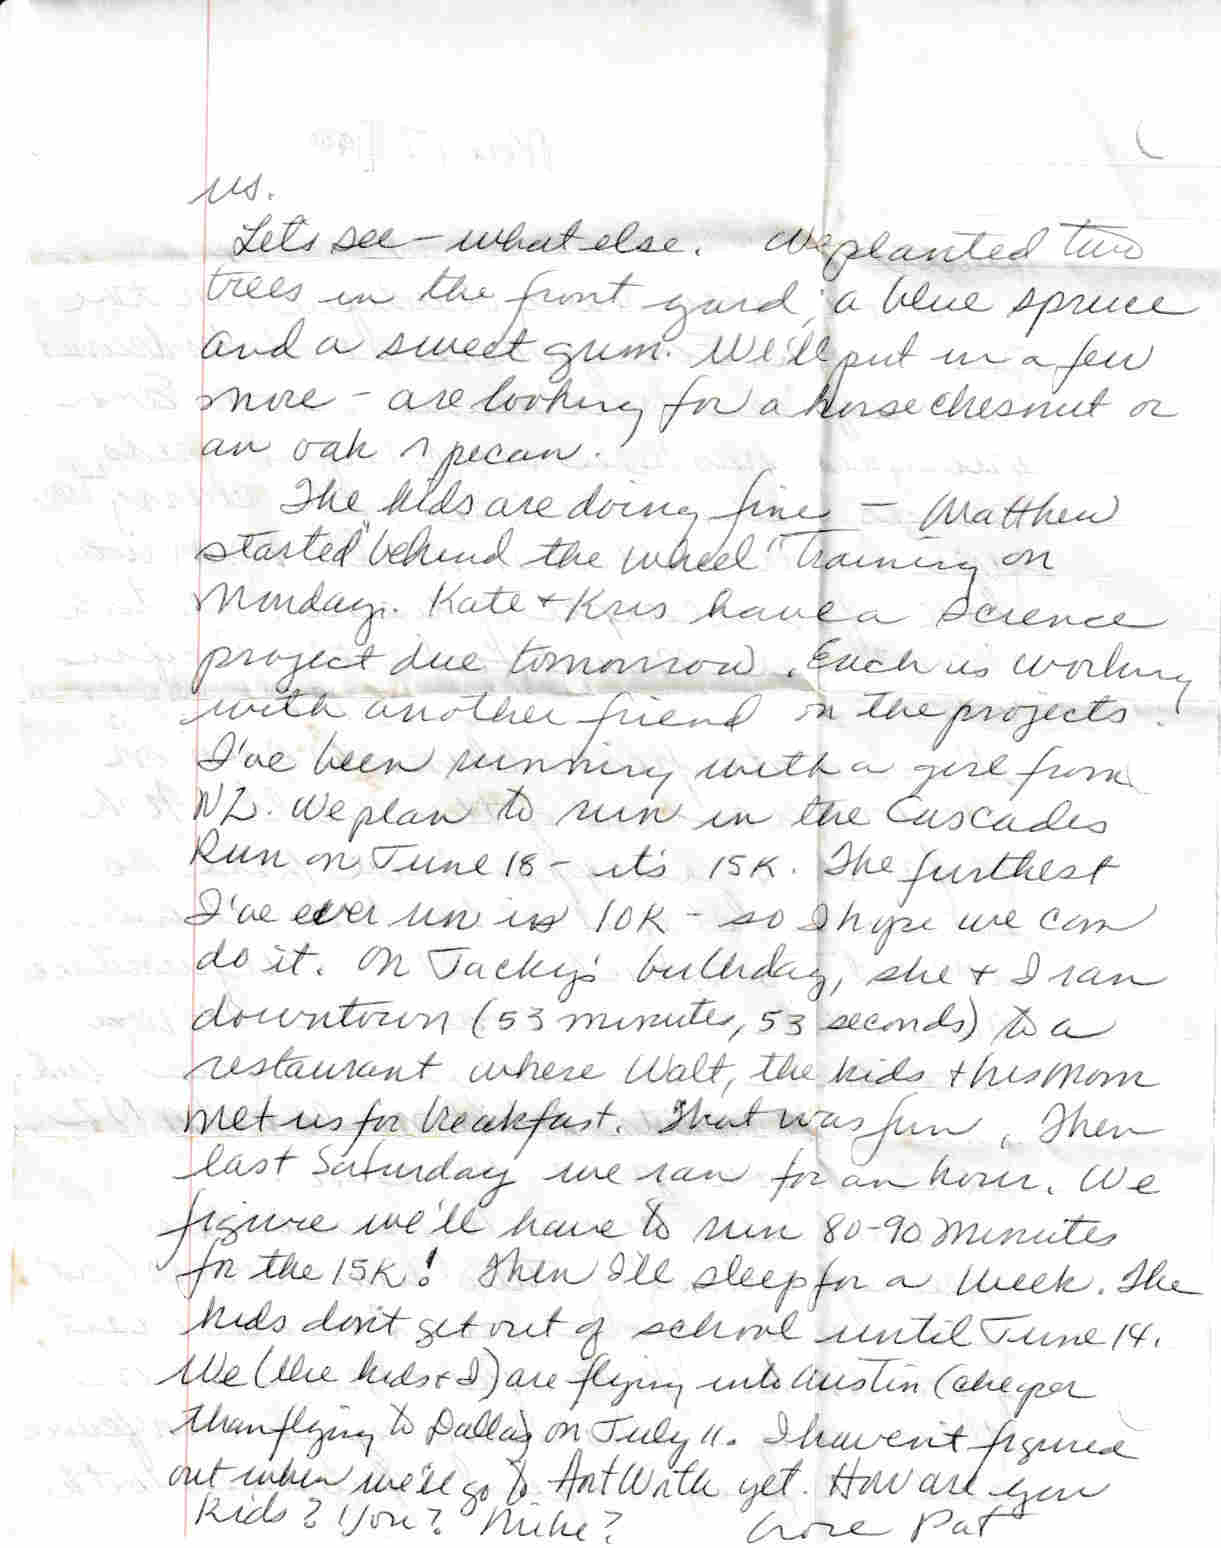 us.
Lets see - what else. We planted two
trees in the front yard; a blue spruce
and a sweet gum. We'll put in a few
more - are looking for a horse chesnut or
an oak or pecan.
The kids are doing fine - Matthew
started "behind the wheel" training on
Monday. Kate + Kris have a science
project due tomorrow. Each is working
with another friend on the projects.
I've been running with a girl from
NZ. We plan to run in the Cascades
Run on June 18 - it's 15K. The furthest
I've ever run is 10K - so I hope we can
do it. On Jacky's birthday, she + I ran
downtown (53 minutes, 53 seconds) to a
restaurant where Walt, the kids + his mom
met us for breakfast. That was fun. Then
last Saturday we ran for an hour. We
figure we'll have to run 80-90 minutes
for the 15K! Then I'll sleep for a week. The
kids don't get out of school until June 14.
We (the kids + I) are flying into Austin (cheaper
than flying to Dallas) on July 11. I haven't figured
out when we'll go to Fort Worth yet. How are you
kids? You? Mike? Love Pat